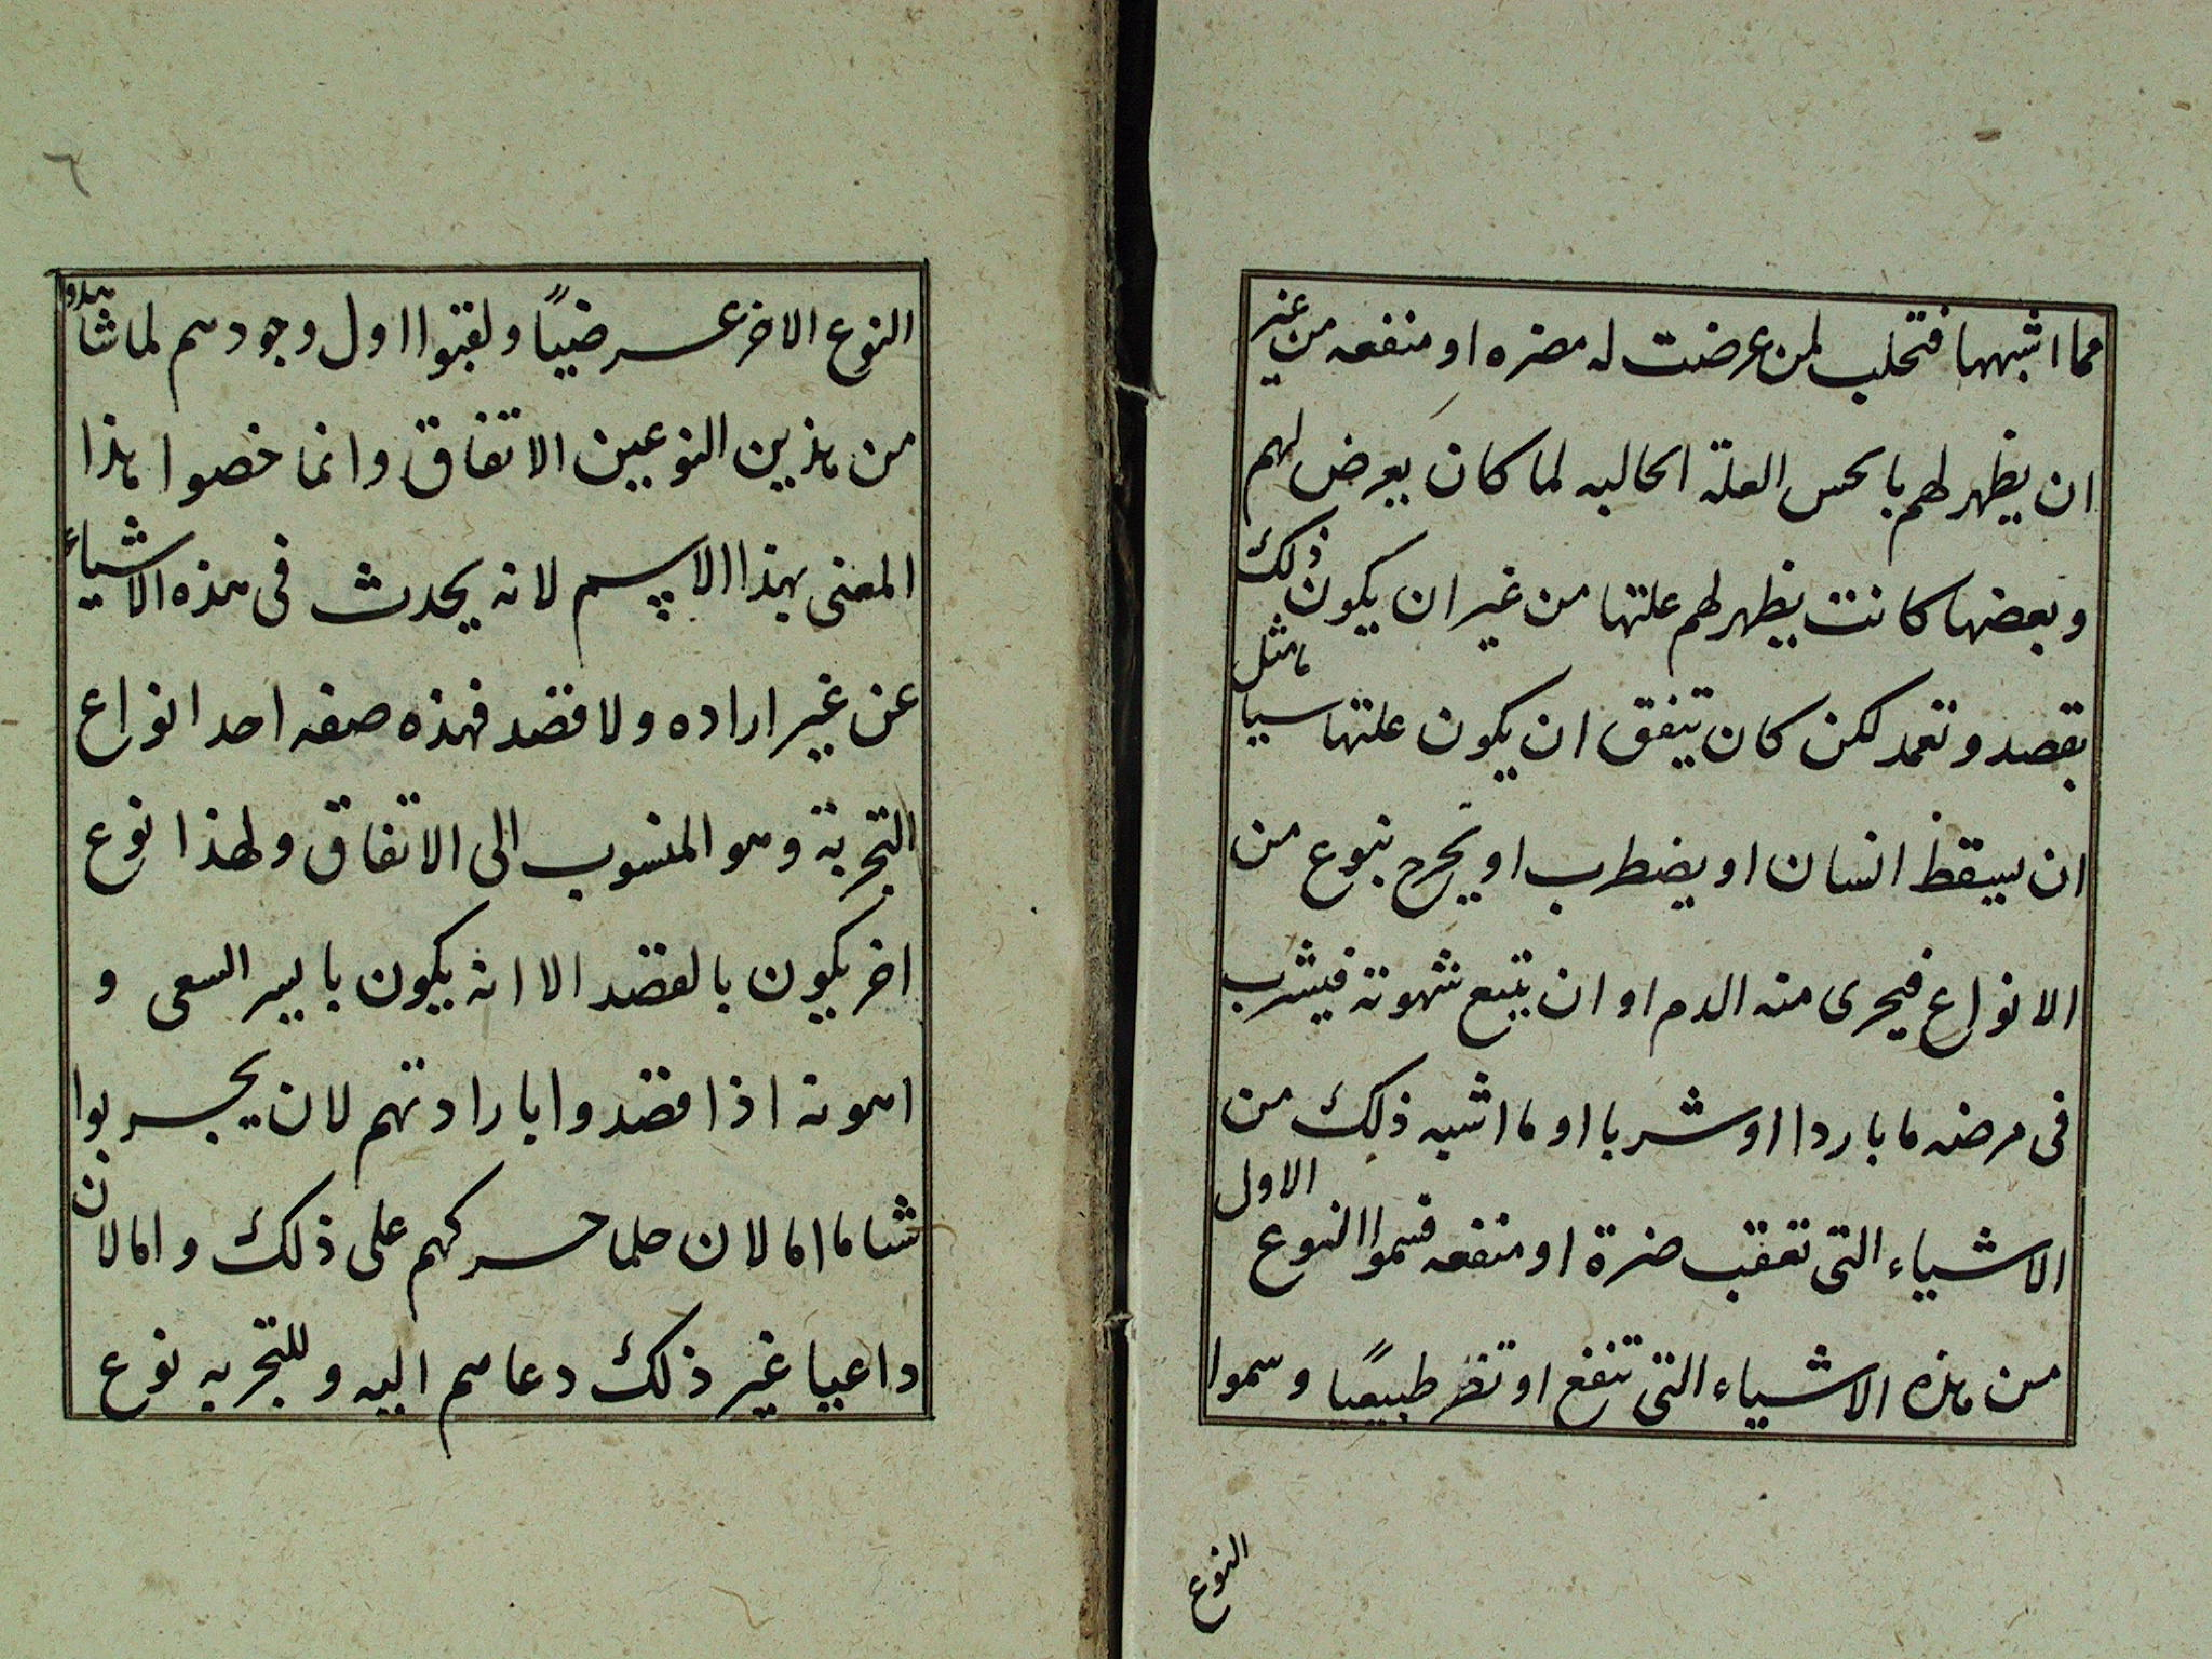 مما اشبهها فتحلب لمن عرضت له مضره او منفعه من غير
ان يظهر لهم بالحس العلة الحالبه لما كان يعرض لهم
وبعضها كانت يظهر لهم علتها من غير ان يكون ذلك
بقصد وتعمد لكن كان تيفق ان يكون علتها سيا مثل
ان سيقظ انسان او يضطرب او يخرج بنوع من
الانواع فيجرى منه الدم او ان يتبع شهوته فيشرب
فى مرضه ما باردا او شربا او ما اشبه ذلك من
الاشياء التى تعقب ضرة او منفعه فسموا النوع الاول
من هذه الاشياء التى تنفع او تضر طبيعيا وسموا
النوع
٦
النوع الاخر عرضيًا ولقبوا اول وجودهم لما شاهدوا
من هذين النوعين الاتفاق وانما خصوا هذا
المعنى بهذا الاسم لانه يحدث فى هذه الاشياء
عن غير اراده ولا قصد فهذه صفه احد انواع
التجربة وهو المنسوب الى الاتفاق ولهذا نوع
اخر يكون بالقصد الا انه يكون بايسر السعى و
اهونه اذا قصدوا بارادتهم لان يجربوا
شاما اما لان حلما حركهم على ذلك واما لان
داعيا غير ذلك دعاهم اليه وللتجربه نوع